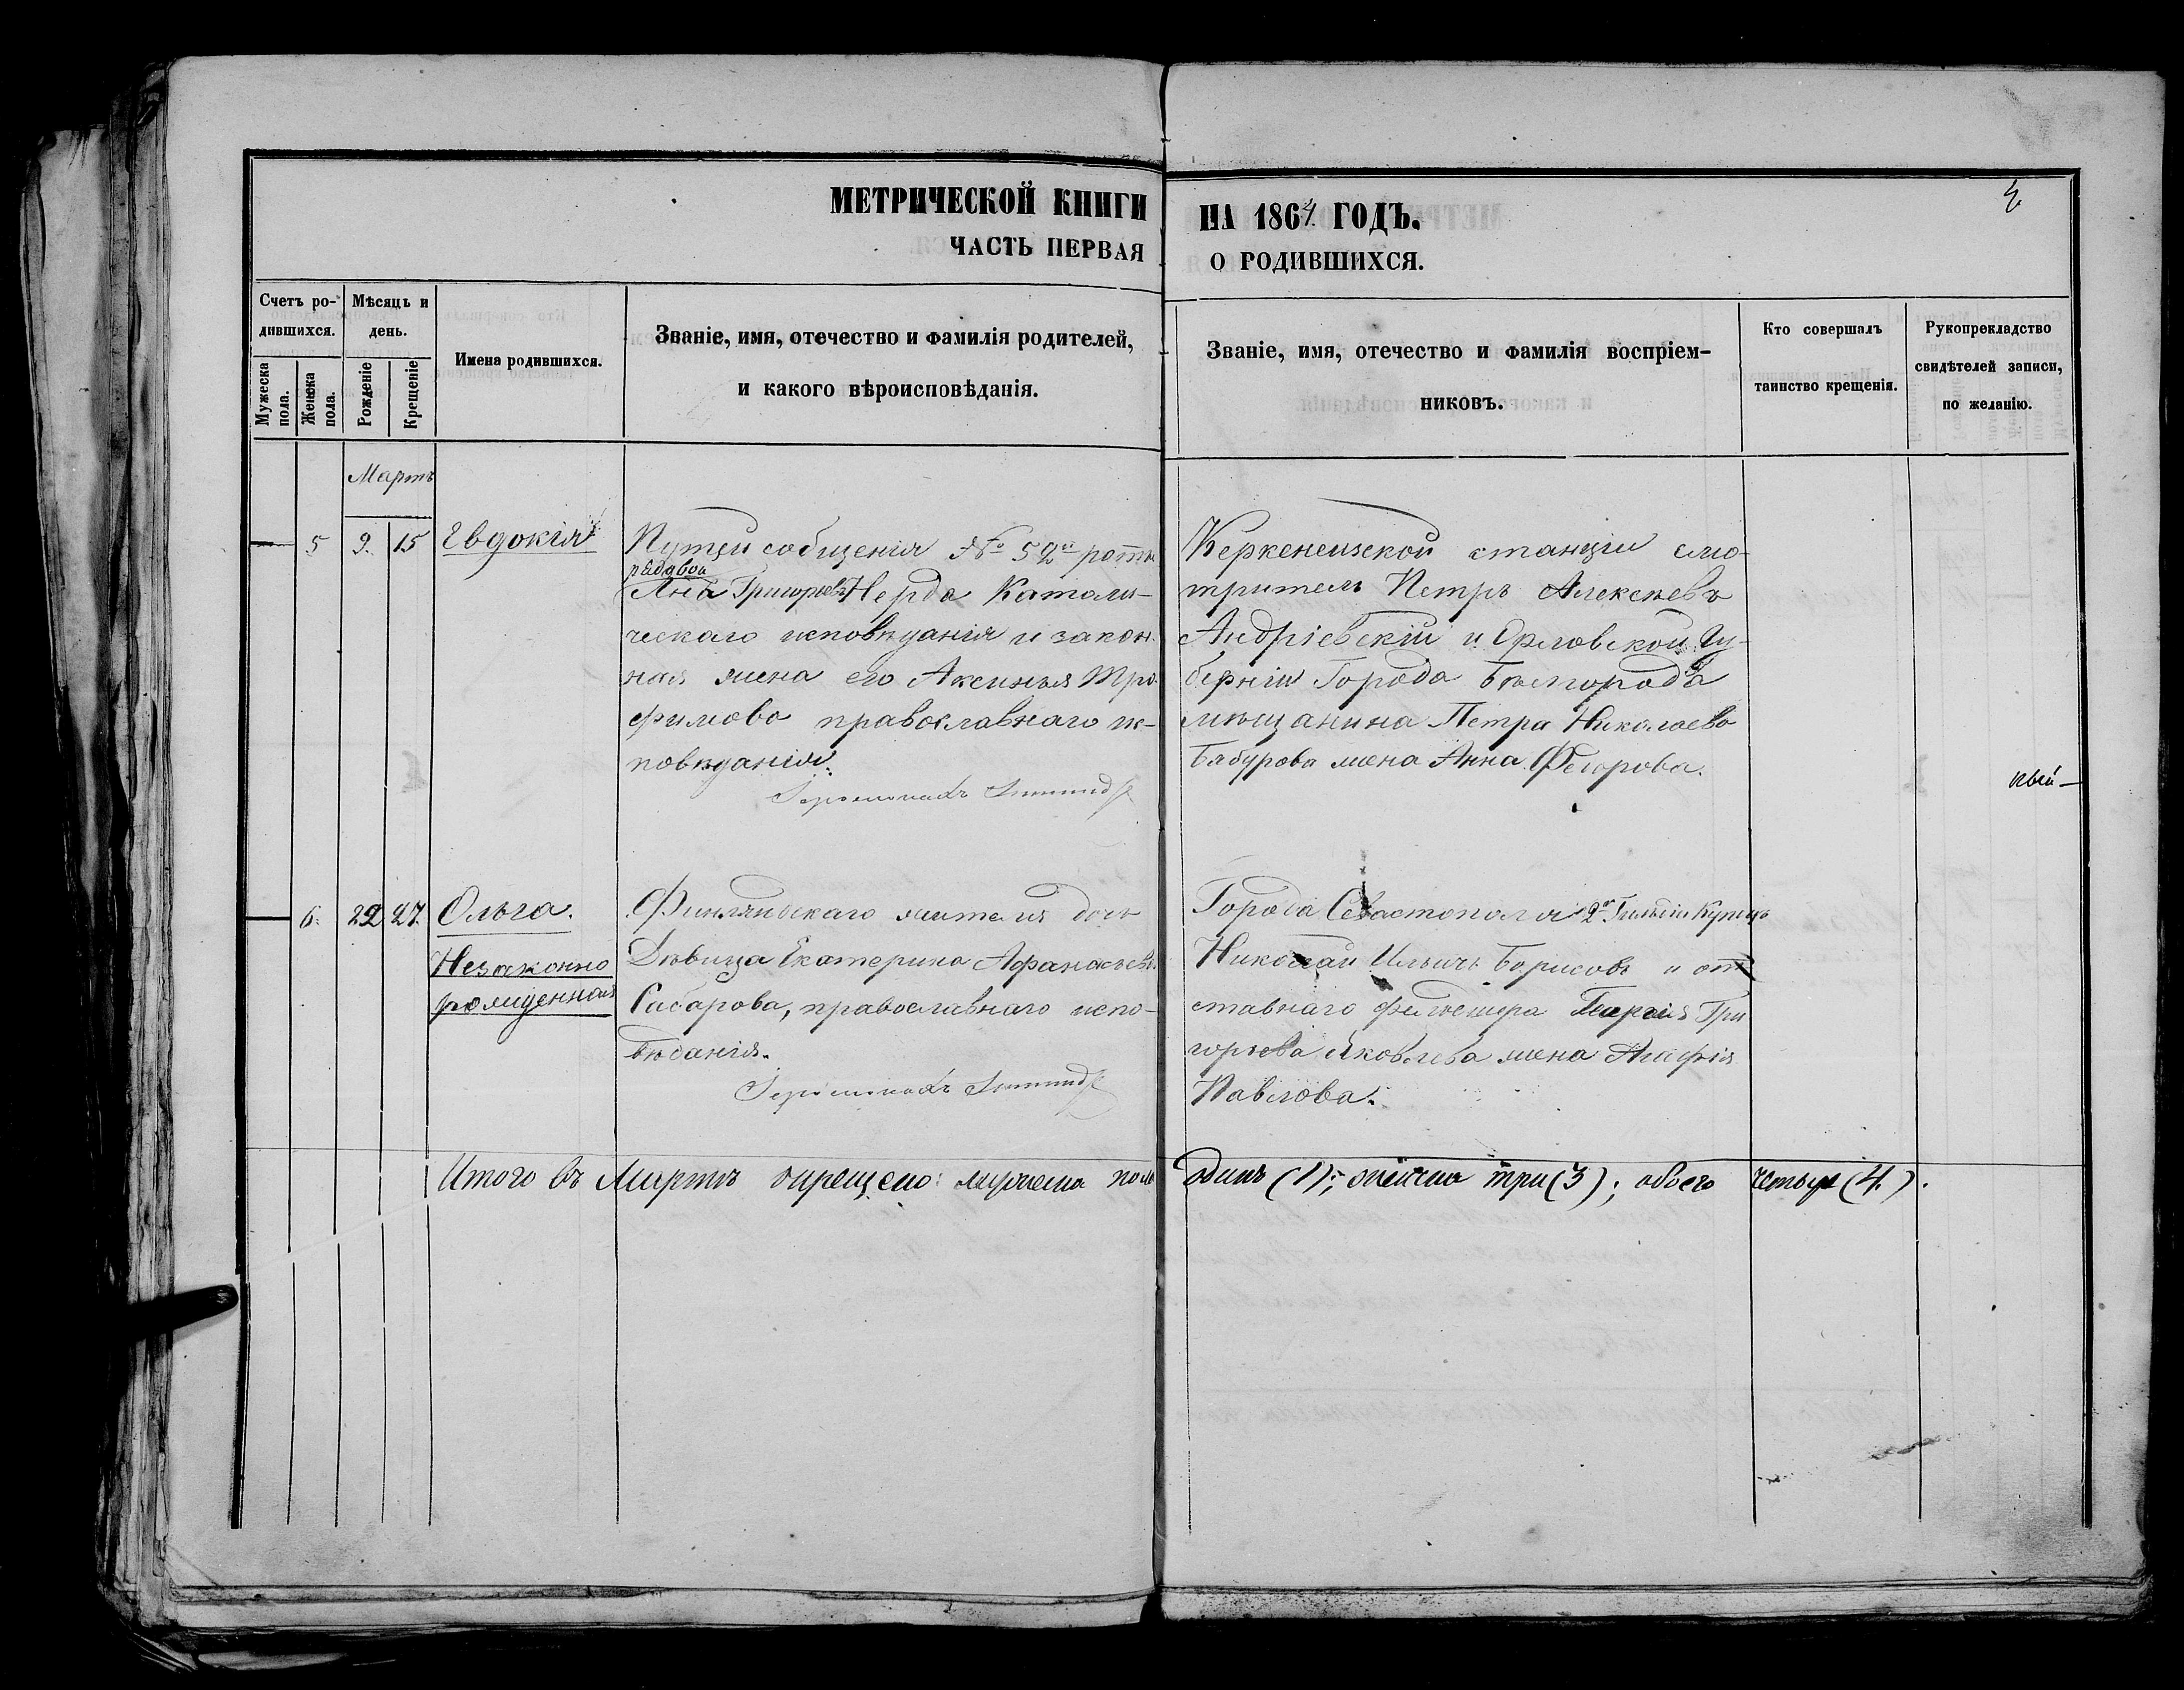 МЕТРИЧЕСКОЙ КНИГИ НА 1864 ГОДЪ.
ЧАСТЬ ПЕРВАЯ О РОДИВШИХСЯ.
Счетъ ро-
дившихся.
Мужеска
пола.
Женска
пола.
Мѣсяцъ и
день.
Рожденіе
Крещеніе
Имена родившихся.
Званіе, имя, отечество и фамилія родителей,
и какого вѣроисповѣданія.
Званіе, имя, отечество и фамилія воспріем-
никовъ.
Кто совершалъ
таинство крещенія.
Рукоприкладство
свидѣтелей записи,
по желанію.
Мартъ
5 9. 15 Евдокія
Путей сообщенія № 52й роты
рядовой
Янъ Григорьевъ Нерда Катали-
ческаго исповѣданія и закон-
ная жена его Аксинья Тро-
фимова православнаго ис-
повѣданія.
Іеромонахъ
Керкенейзской станціи смо-
тритель Петръ Алексѣевъ
Андріевскій и Орловской Гу-
берніи Города Бѣлгорода
мѣщанина Петра Николаева
Бабурова жена Анна Федорова.
6. 22 27. Ольга.
Незаконно
рожденная
Финляндскаго жителя дочь
Дѣвица Екатерина Афанасьева
Сабарова, православнаго испо-
вѣданія.
Іеромонахъ
Города Севастополя 2й Гильдіи Купецъ
Николай Ильичъ Борисовъ и от
ставнаго фельдшера Георгія Гри
горьева Яковлева жена Агафія
Павлова.
Итого въ Мартѣ окрещено: мужеска пола одинъ (1); женска три (3); обоего четыре (4).